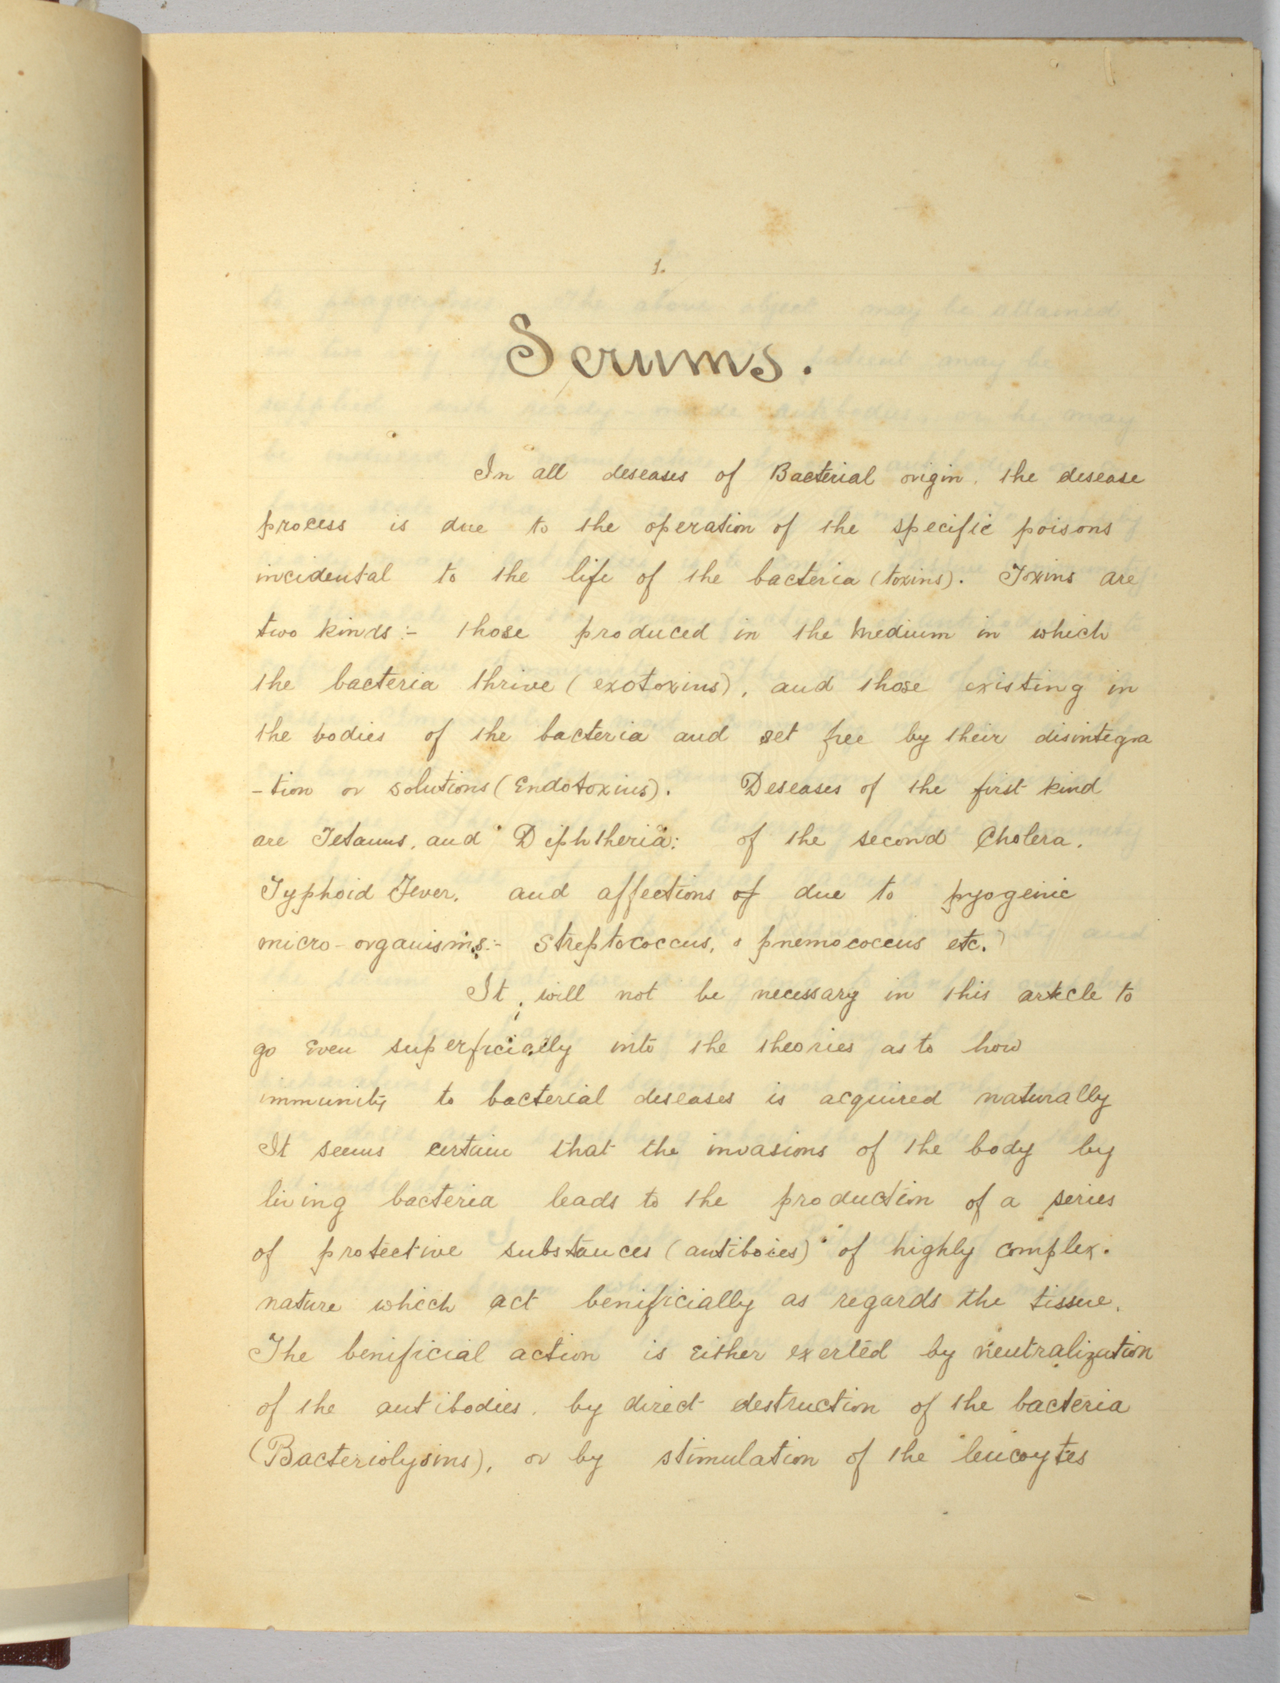 1.
Serums.
In all deseases of Bacterial origin, the desease
process is due to the operation of the specific poisons
incidental to the life of the bacteria (toxins). Toxins are
two kinds:- those produced in the medium in which
the bacteria thrive (exotoxins), and those existing in
the bodies of the bacteria and set free by their disintegra
-tion or solutions (Endotoxins). Deseases of the first kind
are Tetanus, and Diphtheria: of the second Cholera,
Typhoid Fever, and affections of due to pyogenic
micro-organisms:- Streptococcus, pnemococcus etc.
It will not be necessary in this article to
go even superficially into the theories as to how
immunity to bacterial deseases is acquired naturally
It seems certain that the invasions of the body by
living bacteria leads to the production of a series
of protective substances (antiboies) of highly complex.
nature which act benificially as regards the tissue.
The benificial action is either exerted by neutralization
of the antibodies, by direct destruction of the bacteria
(Bacteriolysins), or by stimulation of the leucoytes